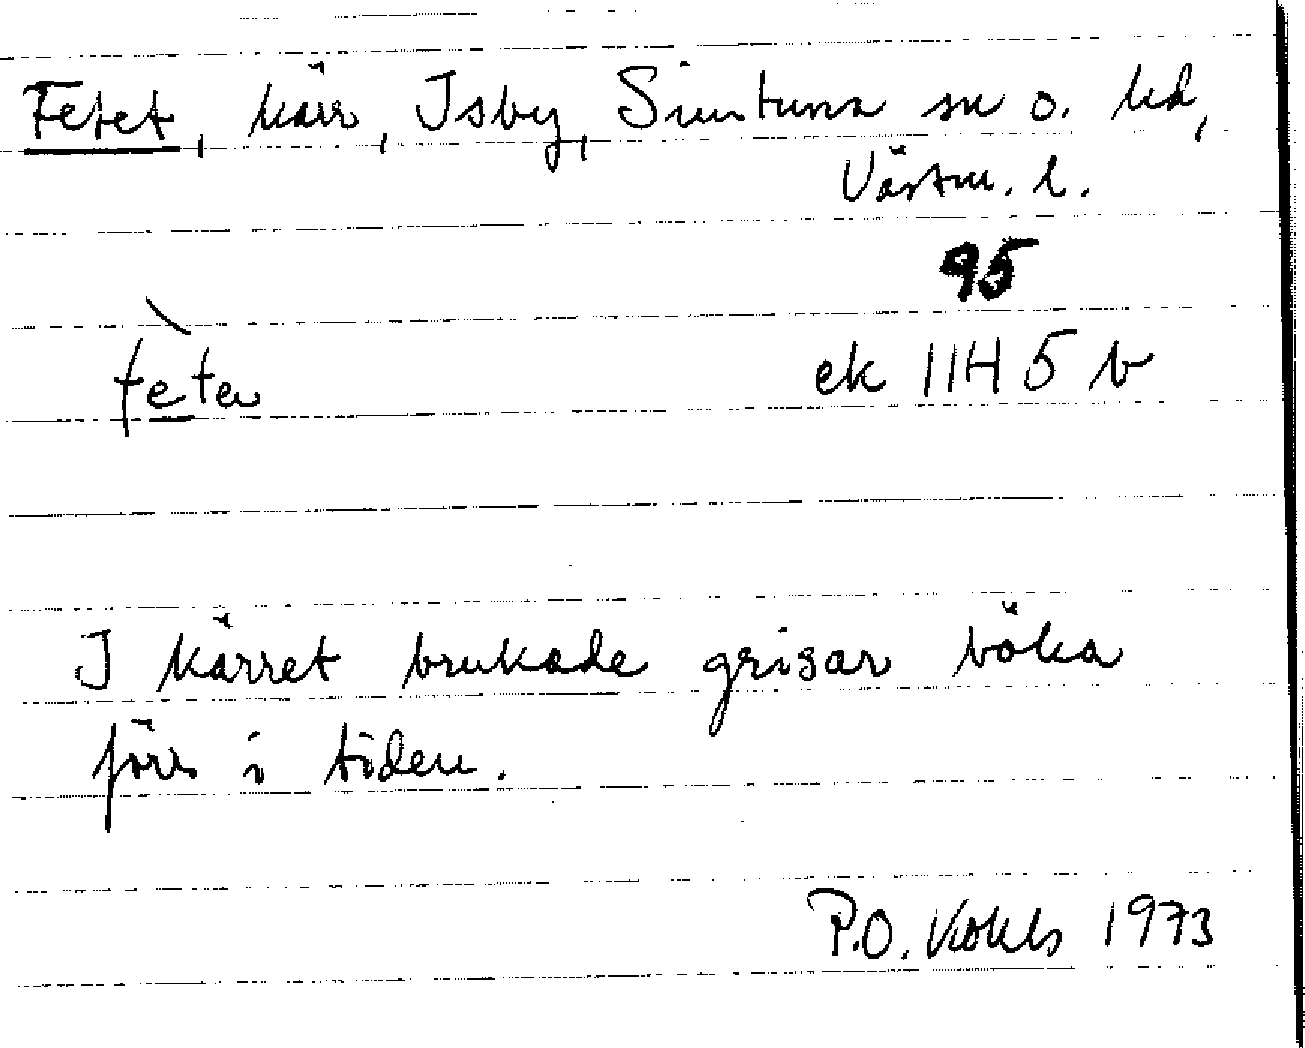 Fetet, kärr, Isby, Simtuna sn o. hd,
Västm. l.
95
fètea
ek 11H 5 b
I kärret brukade grisar böka
förr i tiden.
P.O. 1973